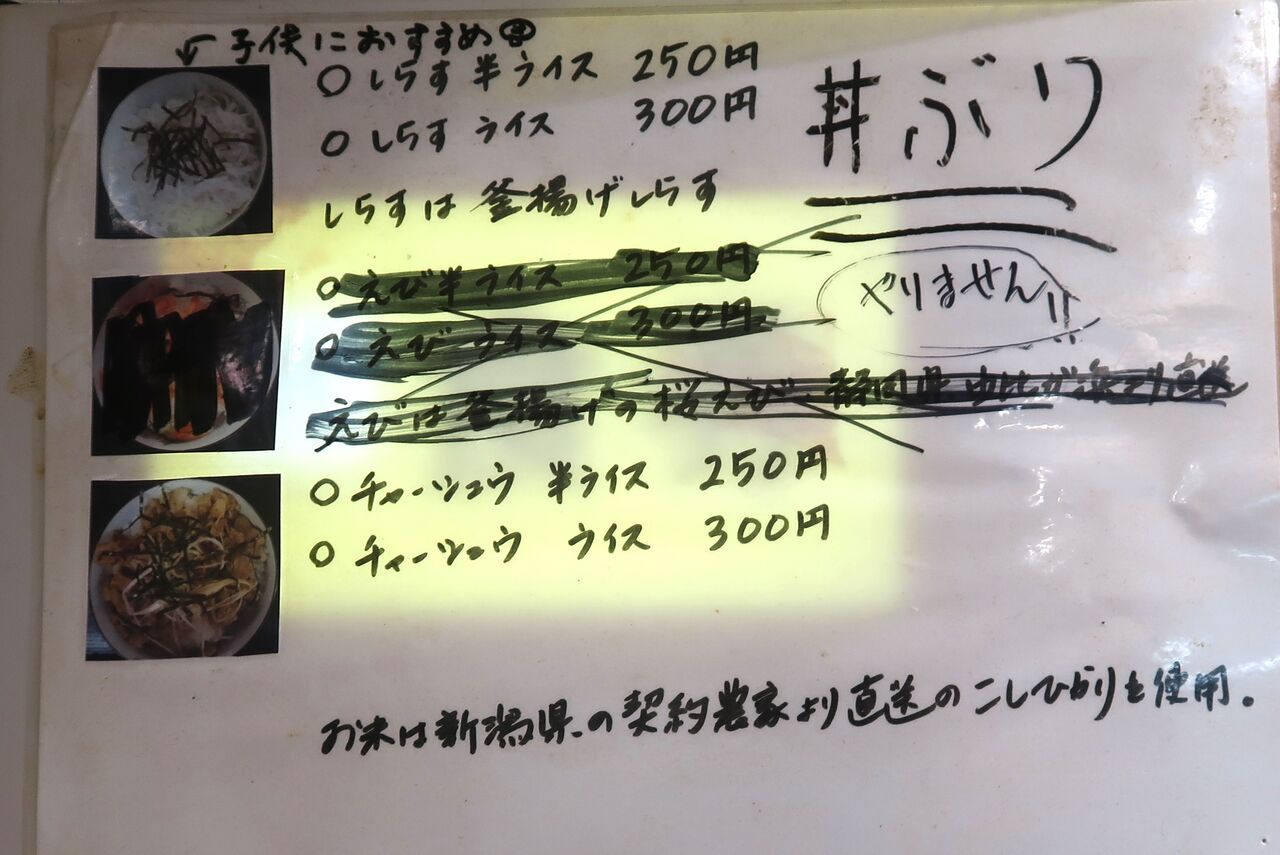 子供におすすめ
丼ぶり
○しらす 半ライス 250円
○しらす ライス 300円
しらすは釜揚げしらす
○えび半ライス 250円
○えび ライス 300円
やりません!!
えびは釜揚げの桜えび、静岡県由比が浜より直送
○チャーシュウ 半ライス 250円
○チャーシュウ ライス 300円
お米は新潟県の契約農家より直送のこしひかりを使用。